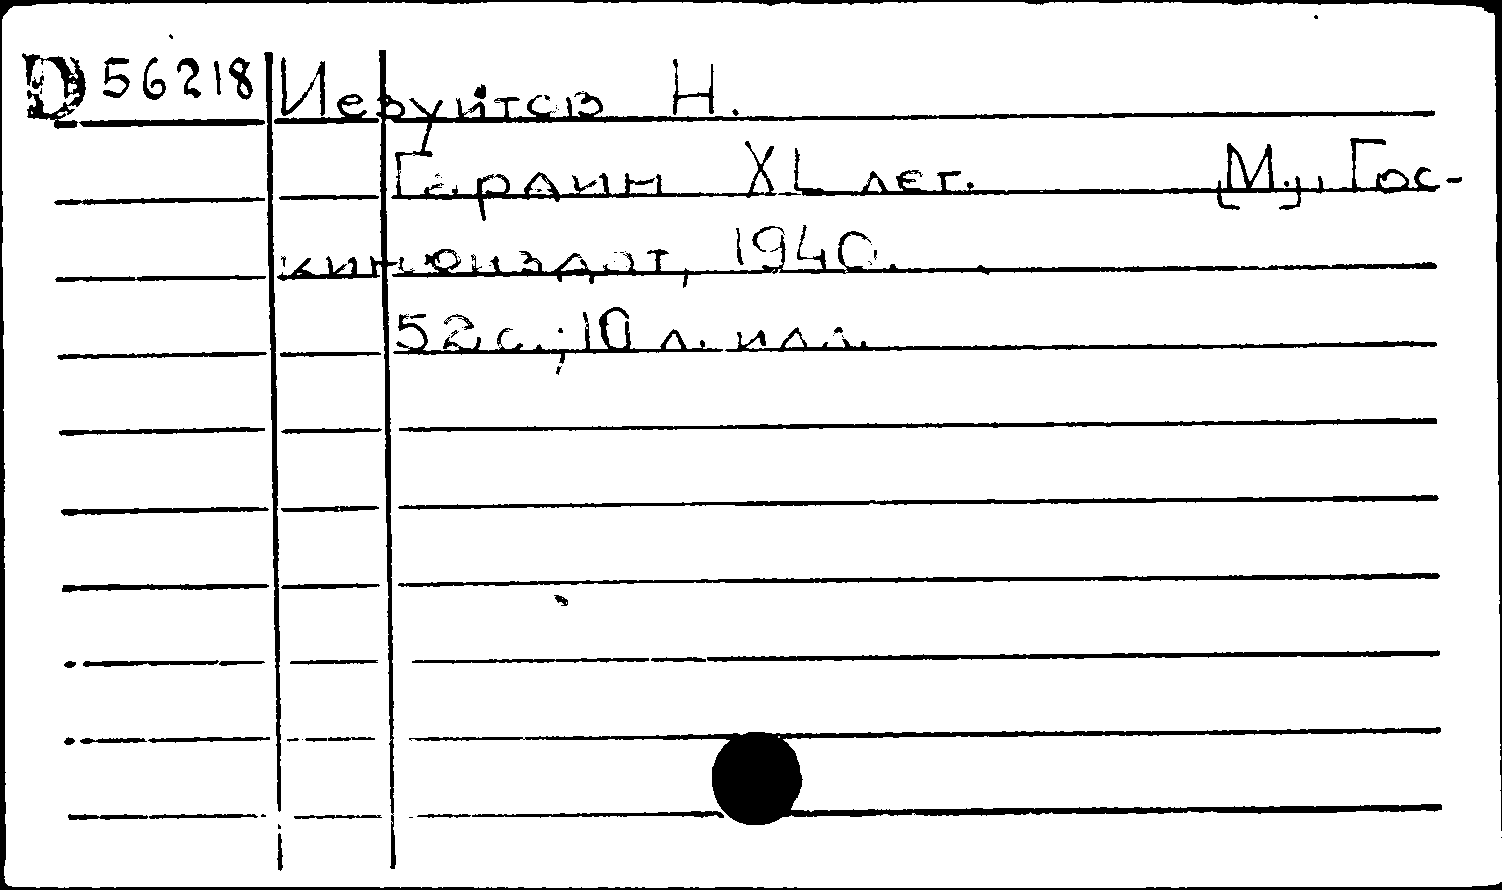 D 56218 Иезуитов Н.
Гардин XL лет. [М.], Гос-
киноиздат, 1940.
52 с.; 10 л. илл.